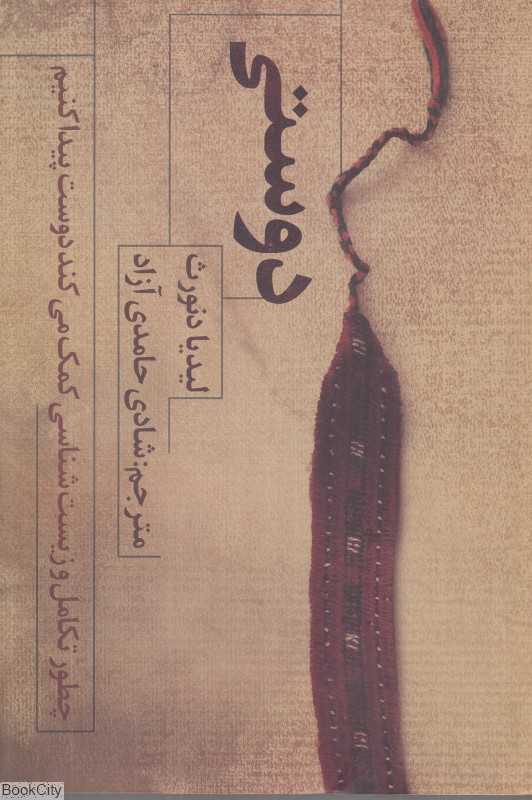 دوستی
لیدیا دنورث
مترجم: شادی حامدی آزاد
چطور تکامل و زیست‌شناسی کمک می‌کند دوست پیدا کنیم
BookCity